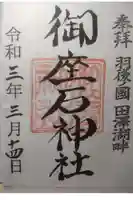 奉拝 羽後國田沢湖畔
御座石神社
令和三年三月十四日